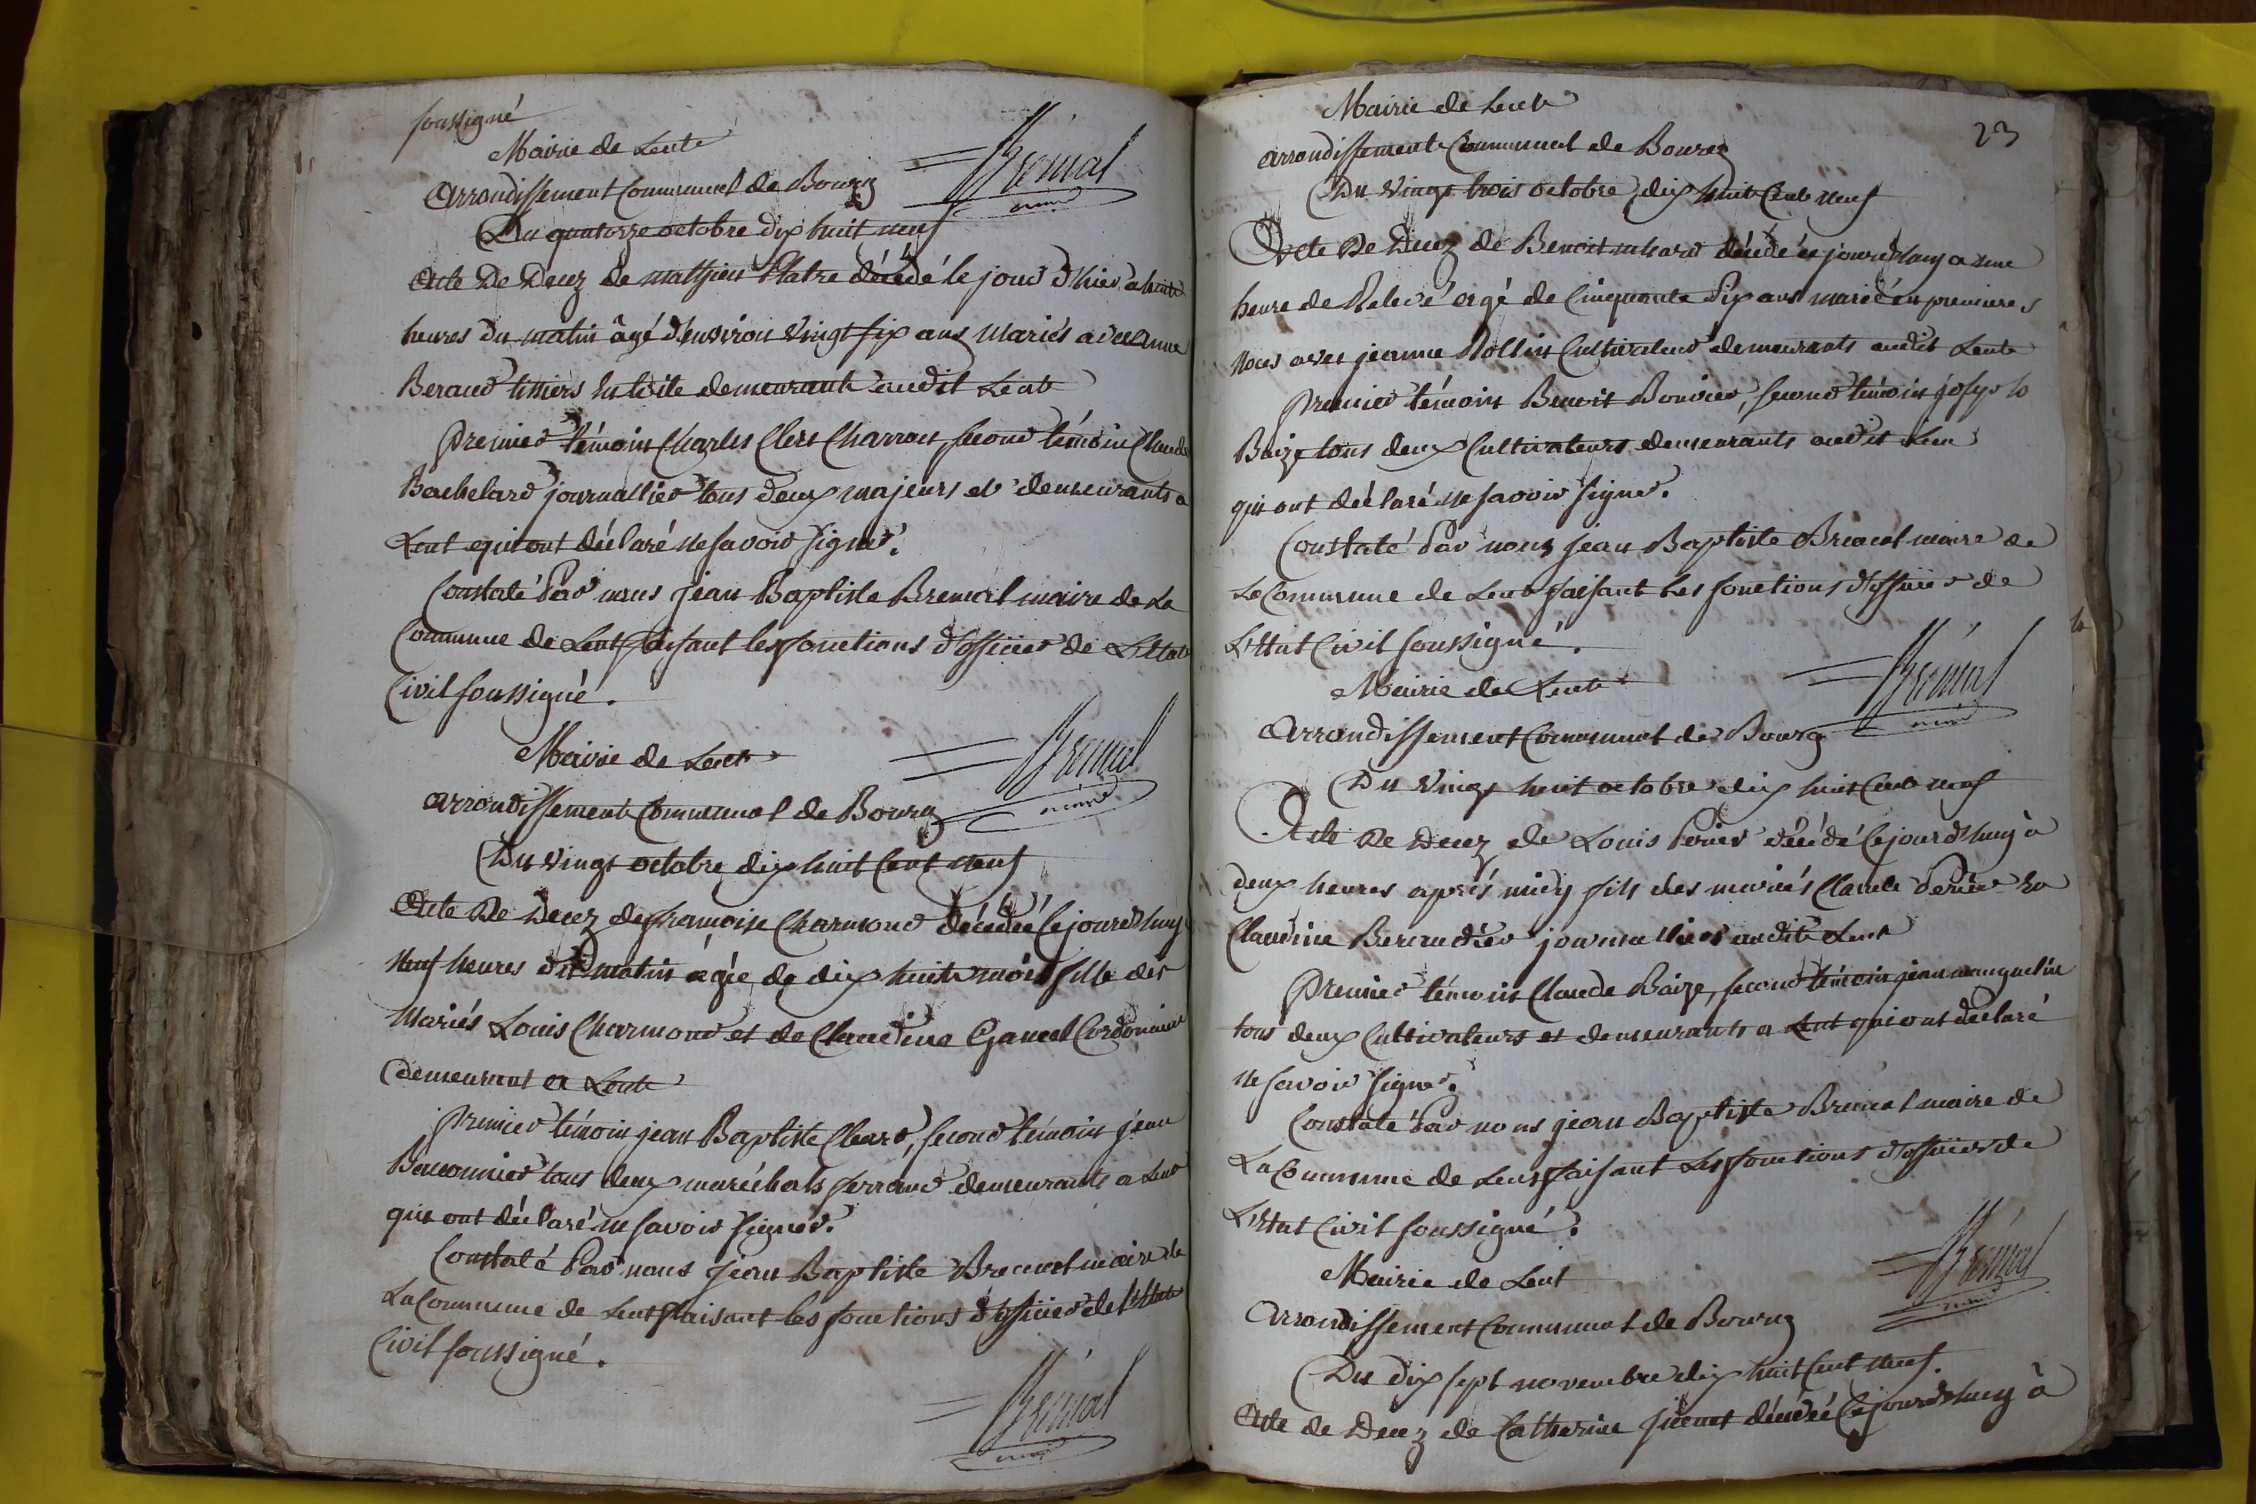 soussigné
Mairie de Lent
Arrondissement Communal de Bourg
Bremal
maire
Du quatorze octobre dix huit neuf
Acte De Decez de mathieu Platre décédé le jour d'hier a huit
heures du matin âgé d'environ vingt six ans mariés avec Anne
Beraud demeurants audit Lent
premier témoin Charles Clerc Charron, second témoin Claude
Bachelard journallier tous deux majeurs et demeurants a
Lent qui ont déclaré ne savoir signer.
Constaté Par nous jean Baptiste Bremal maire de La
Commune de Lent faisant les fonctions d'officier de L'Etat
Civil soussigné.
Mairie de Lent
Bremal
maire
arrondissement Communal de Bourg
Du vingt octobre dix huit Cent neuf
Acte De Decez de françoise Charmond décédée Cejourd'huy
neuf heures du matin agée de dix huit mois fille des
mariés Louis Charmond et de Claudine Cordonnier
demeurant a Lent
premier témoin jean Baptiste Cleard, second témoin jean
Baconnier tous deux maréchals ferrand demeurants a Lent
qui ont déclaré ne savoir signer.
Constaté Par nous jean Baptiste Bremal maire de
La Commune de Lent faisant les fonctions d'officier de l'Etat
Civil soussigné.
Bremal
maire
23
Mairie de Lent
arrondissement Communal de Bourg
Du vingt trois octobre dix huit Cent neuf
Acte De Decez de Benoit décédé ce jourd'huy a une
heure de Relevé agé de Cinquante six ans marié en premieres
noces avec jeanne Rollin Cultivateur demeurants audit Lent
premier témoin Benoit Bouvier, second témoin joseph
Baize tous deux Cultivateurs demeurants audit Lieu
qui ont déclaré ne savoir signer.
Constaté Par nous jean Baptiste Bremal maire de
La Commune de Lent faisant les fonctions d'officier de
L'Etat Civil soussigné.
Mairie de Lent
Bremal
maire
Arrondissement Communal de Bourg
Du vingt huit octobre dix huit Cent neuf
Acte De Decez de Louis Perier décédé Cejourd'huy à
deux heures après midy fils des mariés Claude Perier
Claudine Beraudier journalliers audit Lent
premier témoin Claude Baize, second témoin jean manguelin
tous deux Cultivateurs et demeurants a Lent qui ont déclaré
ne savoir signer.
Constaté Par nous jean Baptiste Bremal maire de
La Commune de Lent faisant Les fonctions d'officier de
L'Etat Civil soussigné.
Mairie de Lent
Bremal
maire
Arrondissement Communal de Bourg
Du dix sept novembre dix huit Cent neuf.
Acte de Decez de Catherine décédée Cejourd'huy à